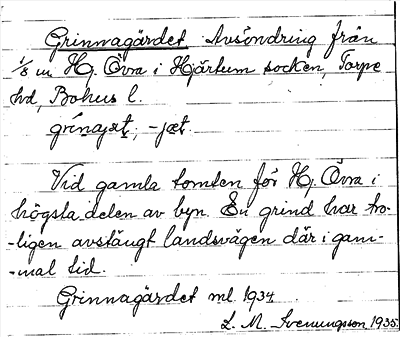 Grinnagärdet Avsöndring från
1/8 m Hj. Övra i Hjärtum socken, Torpe
hd, Bohus l.
grinajæt; -jæt.
Vid gamla tomten för Hj. Övra i
högsta delen av byn. En grind har tro-
-ligen avstängt landsvägen där i gam-
-mal tid.
Grinnagärdet ml. 1934
L. M. Svenungsson 1935.